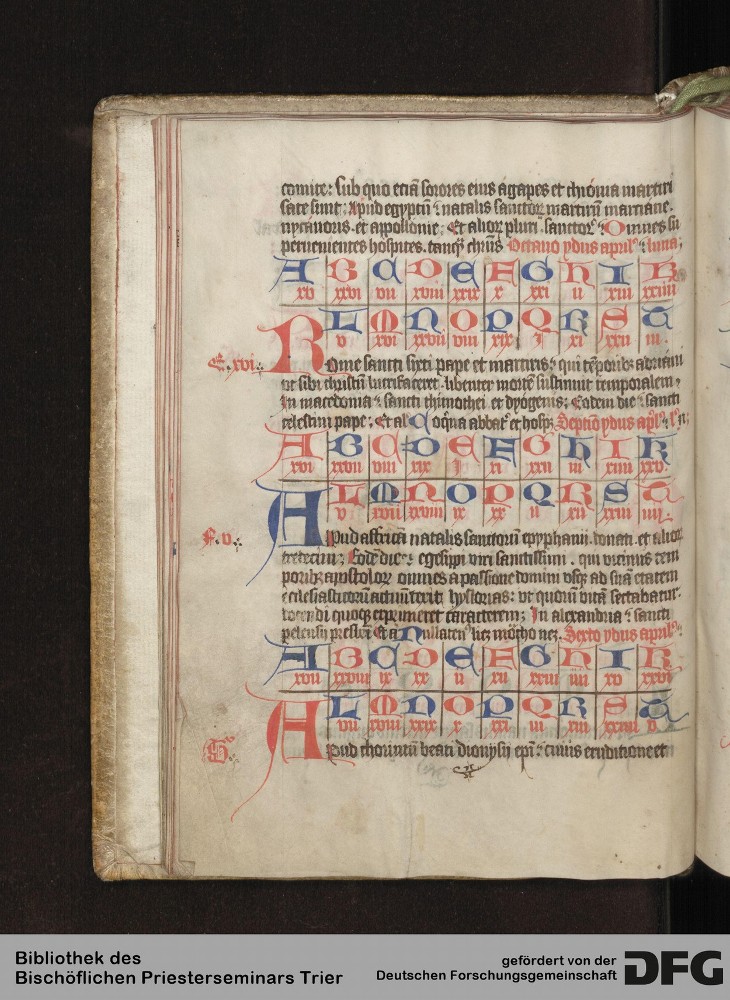 comite: sub quo etiā sorores eius agapes et chionia martiri
sate sunt: Apud egyptū natalis sanctoꝝ martirū marciane.
nycanoris. et appollonie: Et alioꝝ pluri. sanctoꝝ Omnes su
peruenientes hospites. tanqȝ chrūs Octauo ydus april' luna:
A B C D E F G H I K
xv xxvi vii xviii xxix x xxi ii xiii xxiiii
L M N O P Q R S
v xvi xxvii viii xix i xi xxii iii
E. xvi.
Rome sancti sixti pape et martiris: qui tēporibȝ adriani
ut sibi christū lucrifaceret. libenter mortē sustinuit temporalem,
In macedonia sancti thimothei et dyogenis: Eodem die sancti
celestini pape: Et al' Septīo ydus apl'
A B C D E F G H I K
xvi xxvii viii xix i xi xxii iii xiiii xxv
L M N O P Q R S
v xvii xxviii ix xx ii xii xxiii iiii
F. v.
Apud affricā natalis sanctorū epyphanii. donati. et alioꝝ
tredecim: Eodē die egesippi viri sanctissimi. qui vicinus tem
poribȝ apostoloꝝ omnes a passione domini usqȝ ad suā etatem
ecclesiasticorū actuū texuit hystorias: ut quorū vitā sectabatur.
docendi quoqȝ exprimeret caracterem; In alexandria sancti
pelensii Sexto ydus april'
A B C D E F G H I K
xvii xxviii ix xx ii xii xxiii iiii xv xxvi
L M N O P Q R S
vii xviii xxix x xxi iii xiii xxiiii v
G
Apud chorintū beati dionysii ep̄i cuius eruditione et
Bibliothek des
Bischöflichen Priesterseminars Trier
gefördert von der
Deutschen Forschungsgemeinschaft
DFG